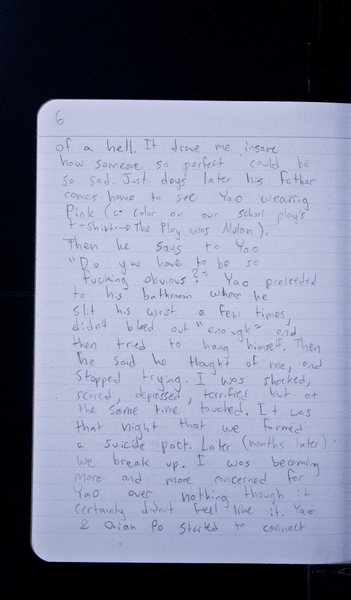 6
of a hell. It drove me insane
how someone so perfect could be
so sad. Just days later his father
comes home to see Yao wearing
Pink (a color on our school play's
t-shirt → The Play was Mulan).
Then he says to Yao
"Do you have to be so
fucking obvious?" Yao preceeded
to his bathroom where he
slit his wrist a few times,
didn't bleed out "enough" and
then tried to hang himself. Then
he said he thought of me, and
stopped trying. I was shocked,
scared, depressed, terrified but at
the same time touched. It was
that night that we formed
a suicide pact. Later (months later)
we break up. I was becoming
more and more concerned for
Yao over nothing though it
certainly didn't feel like it. Yao
& Qian Po started to connect